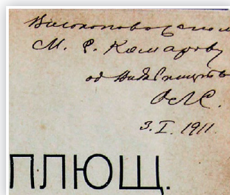 Високоповажаном
М. Ф. Комарову
од Видавництва
3.I.1911.
ПЛЮЩ.